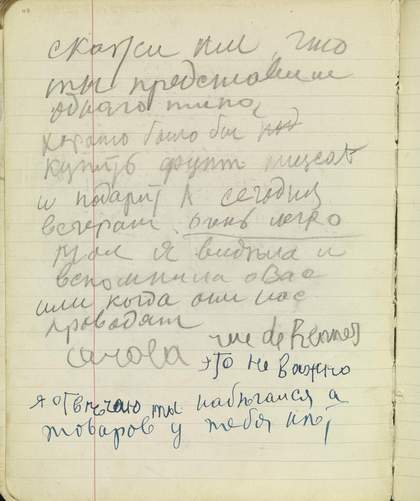 скажи им, что
ты представим
одного типа,
хорошо было бы
купить фунт
и подарит А сегодня
вечерам очень легко
я видела и
вспомнила о Вас
или когда они нас
проводят
rue de Rennes
это не важно
я отвечаю, ты набегался а
товаров у тебя нет